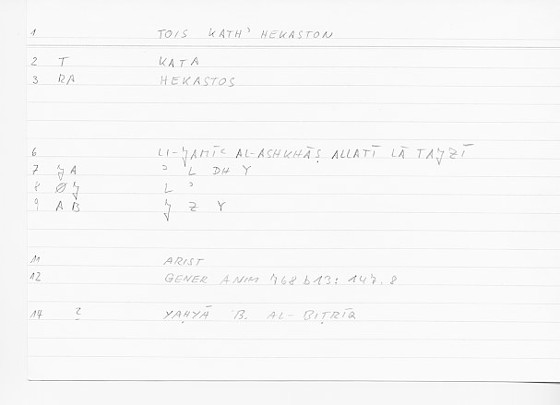 1 TOIS KATH' HEKASTON
2 T KATA
3 RA HEKASTOS
6 AL-ASHKHĀṢ ALLATĪ LĀ
7 A ʾ L DH Y
8 L ʾ
9 A B Z Y
11 ARIST
12 GENER ANIM 768 b13: 147.8
14 2 YAḤYĀ B. AL-BIṬRĪQ